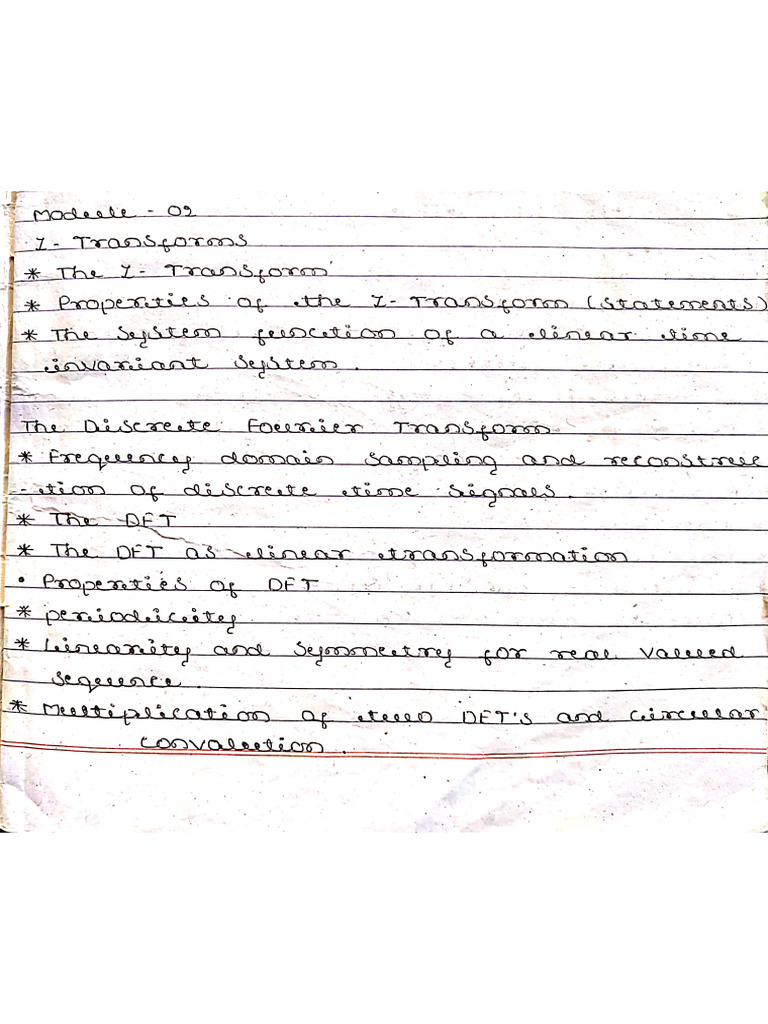 Module - 02
Z - Transforms
* The Z - Transform
* Properties of the Z - Transform (Statements)
* The system function of a linear time
invariant system.
The Discrete Fourier Transform
* Frequency domain sampling and reconstruc
- tion of discrete time signals.
* The DFT
* The DFT as linear transformation
• Properties of DFT
* periodicity
* Linearity and symmetry for real valued
sequence.
* Multiplication of two DFT's and circular
convalution.